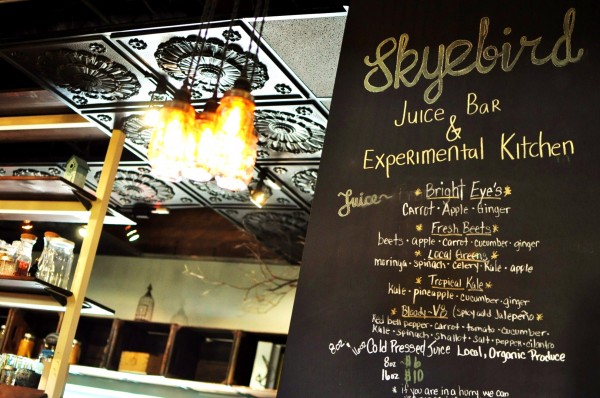 Skyebird
Juice Bar
&
Experimental Kitchen
Juice
* Bright Eye's *
Carrot · Apple · Ginger
* Fresh Beets *
beets · apple · carrot · cucumber · ginger
* Local Greens *
moringa · spinach · celery · Kale · apple
* Tropical Kale *
Kale · pineapple · cucumber · ginger
* Bloody-V8 * (Spicy add Jalapeño)
Red bell pepper · carrot · tomato · cucumber ·
Kale · spinach · shallot · salt · pepper · cilantro
8oz & 16oz Cold Pressed Juice Local, Organic Produce
8oz $6
16oz $10
* if you are in a hurry we can